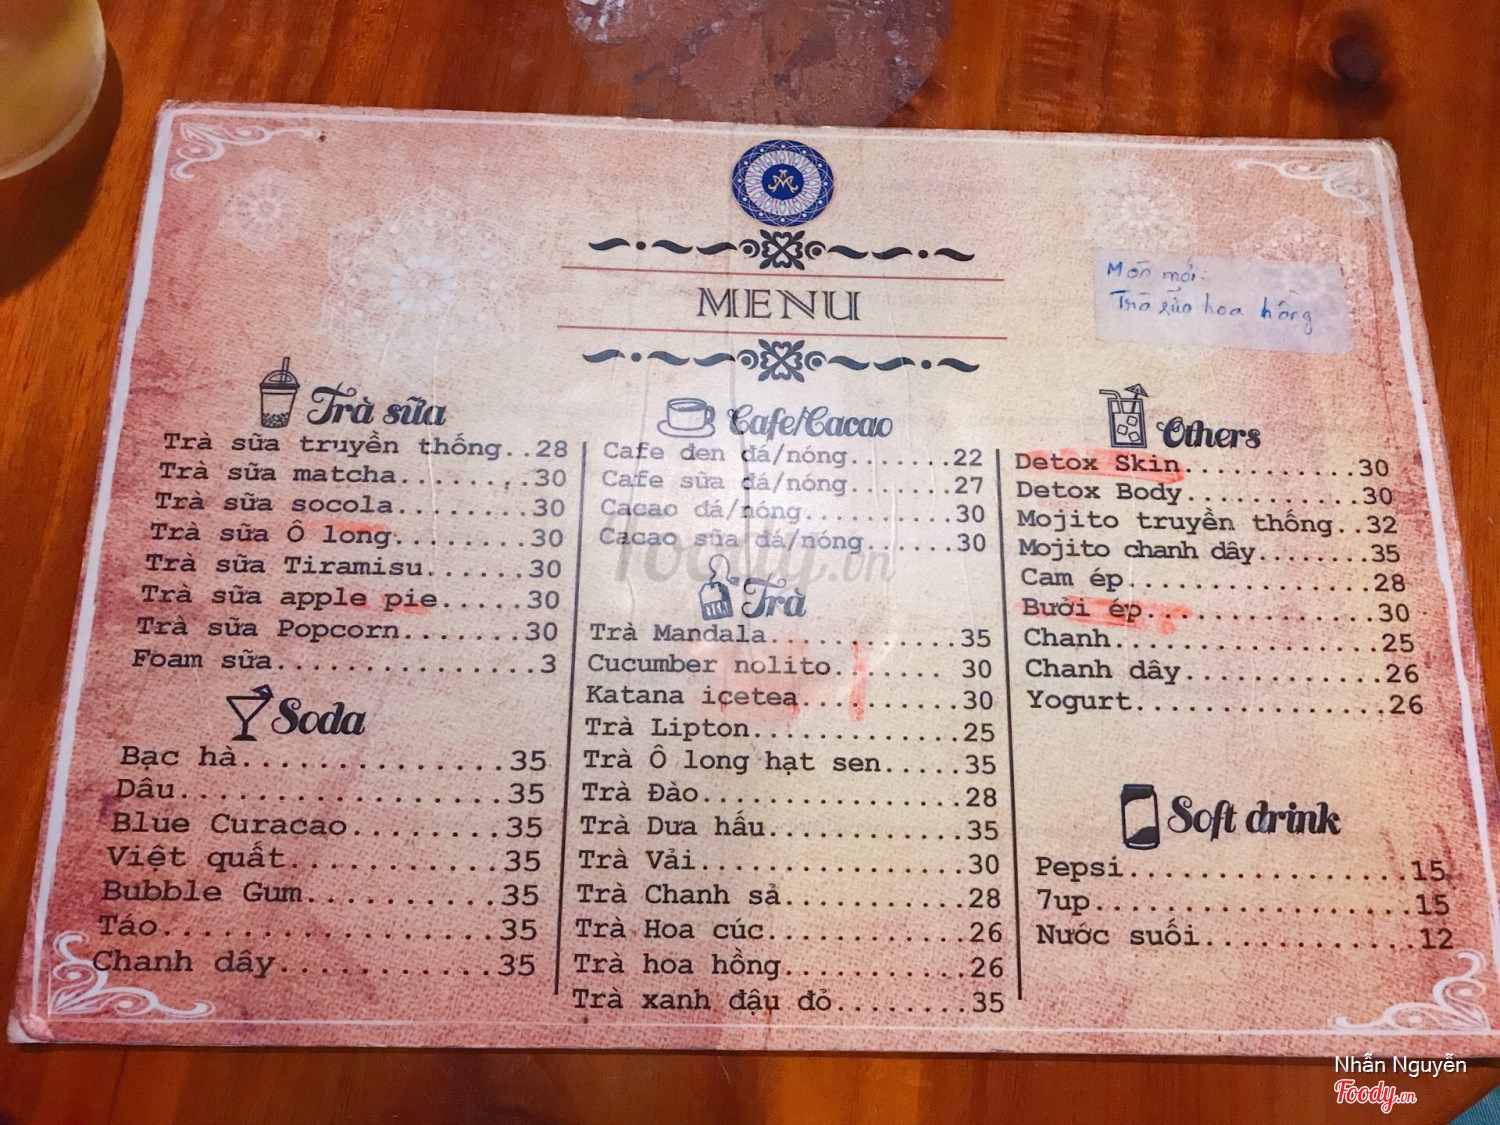 MENU
Món mới:
Trà sữa hoa hồng
Trà sữa
Trà sữa truyền thống..28
Trà sữa matcha........30
Trà sữa socola........30
Trà sữa Ô long........30
Trà sữa Tiramisu......30
Trà sữa apple pie.....30
Trà sữa Popcorn.......30
Foam sữa...............3
Soda
Bạc hà...............35
Dâu..................35
Blue Curacao........35
Việt quất...........35
Bubble Gum..........35
Táo..................35
Chanh dây...........35
Cafe/Cacao
Cafe đen đá/nóng.......22
Cafe sữa đá/nóng.......27
Cacao đá/nóng.........30
Cacao sữa đá/nóng......30
TEA
Trà
Trà Mandala...........35
Cucumber nolito....... 30
Katana icetea.........30
Trà Lipton............25
Trà Ô long hạt sen.....35
Trà Đào...............28
Trà Dưa hấu...........35
Trà Vải...............30
Trà Chanh sả..........28
Trà Hoa cúc...........26
Trà hoa hồng..........26
Trà xanh đậu đỏ.......35
Others
Detox Skin..........30
Detox Body..........30
Mojito truyền thống..32
Mojito chanh dây......35
Cam ép..............28
Bưởi ép.............30
Chanh...............25
Chanh dây...........26
Yogurt..............26
Soft drink
Pepsi................15
7up..................15
Nước suối............12
Foody.vn
Nhẫn Nguyễn
Foody.vn